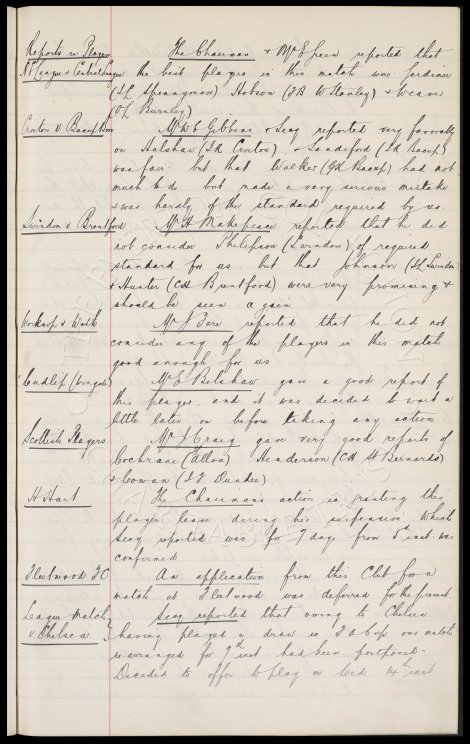 Reports re Players The Chairman & Mr Green reported that
N E League v Central League the best players in this match was Gardiner
(I L Spennymoor) Hobson (F B W Stanley) & Weaver
(O L Burnley)
Croston v Bacup Boro Mr W E Gibbins & Secy reported very favorably
on Halshaw (I R Croston) & Sandiford (I R Bacup)
was fair. but that Walker (GK Bacup) had not
much to do but made a very serious mistake
& was hardly of the standard required by us.
Swindon v Brentford Mr H Makepeace reported that he did
not consider Philipson (Swindon) of required
standard for us but that Johnson (I L Swindon)
& Hunter (C H Brentford) were very promising &
should be seen again
Worksop v Wath Mr J Bare reported that he did not
consider any of the players in this match
good enough for us
Cudlip (Kings) Mr E Belshaw gave a good report of
this player, and it was decided to wait a
little later on before taking any action.
Scottish Players Mr J Craig gave very good reports of
Cochrane (Alloa) Henderson (C H St Bernards)
& Cowan (I F Dundee)
H Hart The Chairmans action in granting this
player leave during his suspension which
Secy reported was for 7 days from 5th inst. was
confirmed
Fleetwood FC An application from this Club for a
match at Fleetwood was deferred for the present.
League Match Secy reported that owing to Chelsea
v Chelsea having played a draw in F A Cup our match
re-arranged for 7th inst had been postponed.
Decided to offer to play on Wed 14th inst